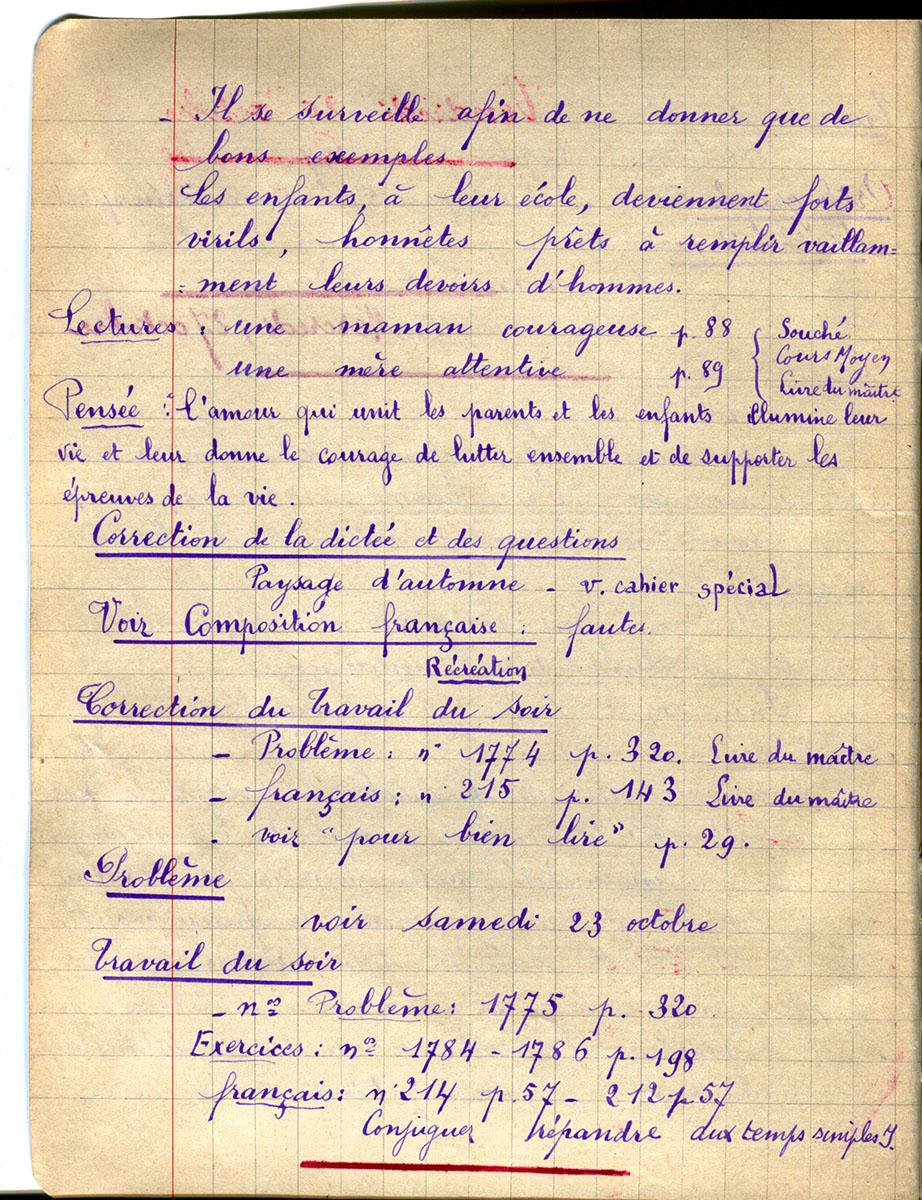 - Il se surveille afin de ne donner que de
bons exemples
Les enfants, à leur école, deviennent forts
virils, honnêtes prêts à remplir vaillam=
=ment leurs devoirs d'hommes.
Lectures : une maman courageuse p. 88 { Souché
une mère attentive p. 89 Cours Moyen
Livre du maître
Pensée : L'amour qui unit les parents et les enfants illumine leur
vie et leur donne le courage de lutter ensemble et de supporter les
épreuves de la vie.
Correction de la dictée et des questions
Paysage d'automne - v. cahier spécial
Voir Composition française : fautes.
Récréation
Correction du travail du soir
- Problème : n° 1774 p. 320. Livre du maître
- français : n° 215 p. 143 Livre du maître
- voir "pour bien lire" p. 29.
Problème
voir samedi 23 octobre
Travail du soir
- nos Problème : 1775 p. 320.
Exercices : nos 1784 - 1786 p. 198
français : n° 214 p. 57 - 212 p 57
Conjuguer répandre aux temps simples I.